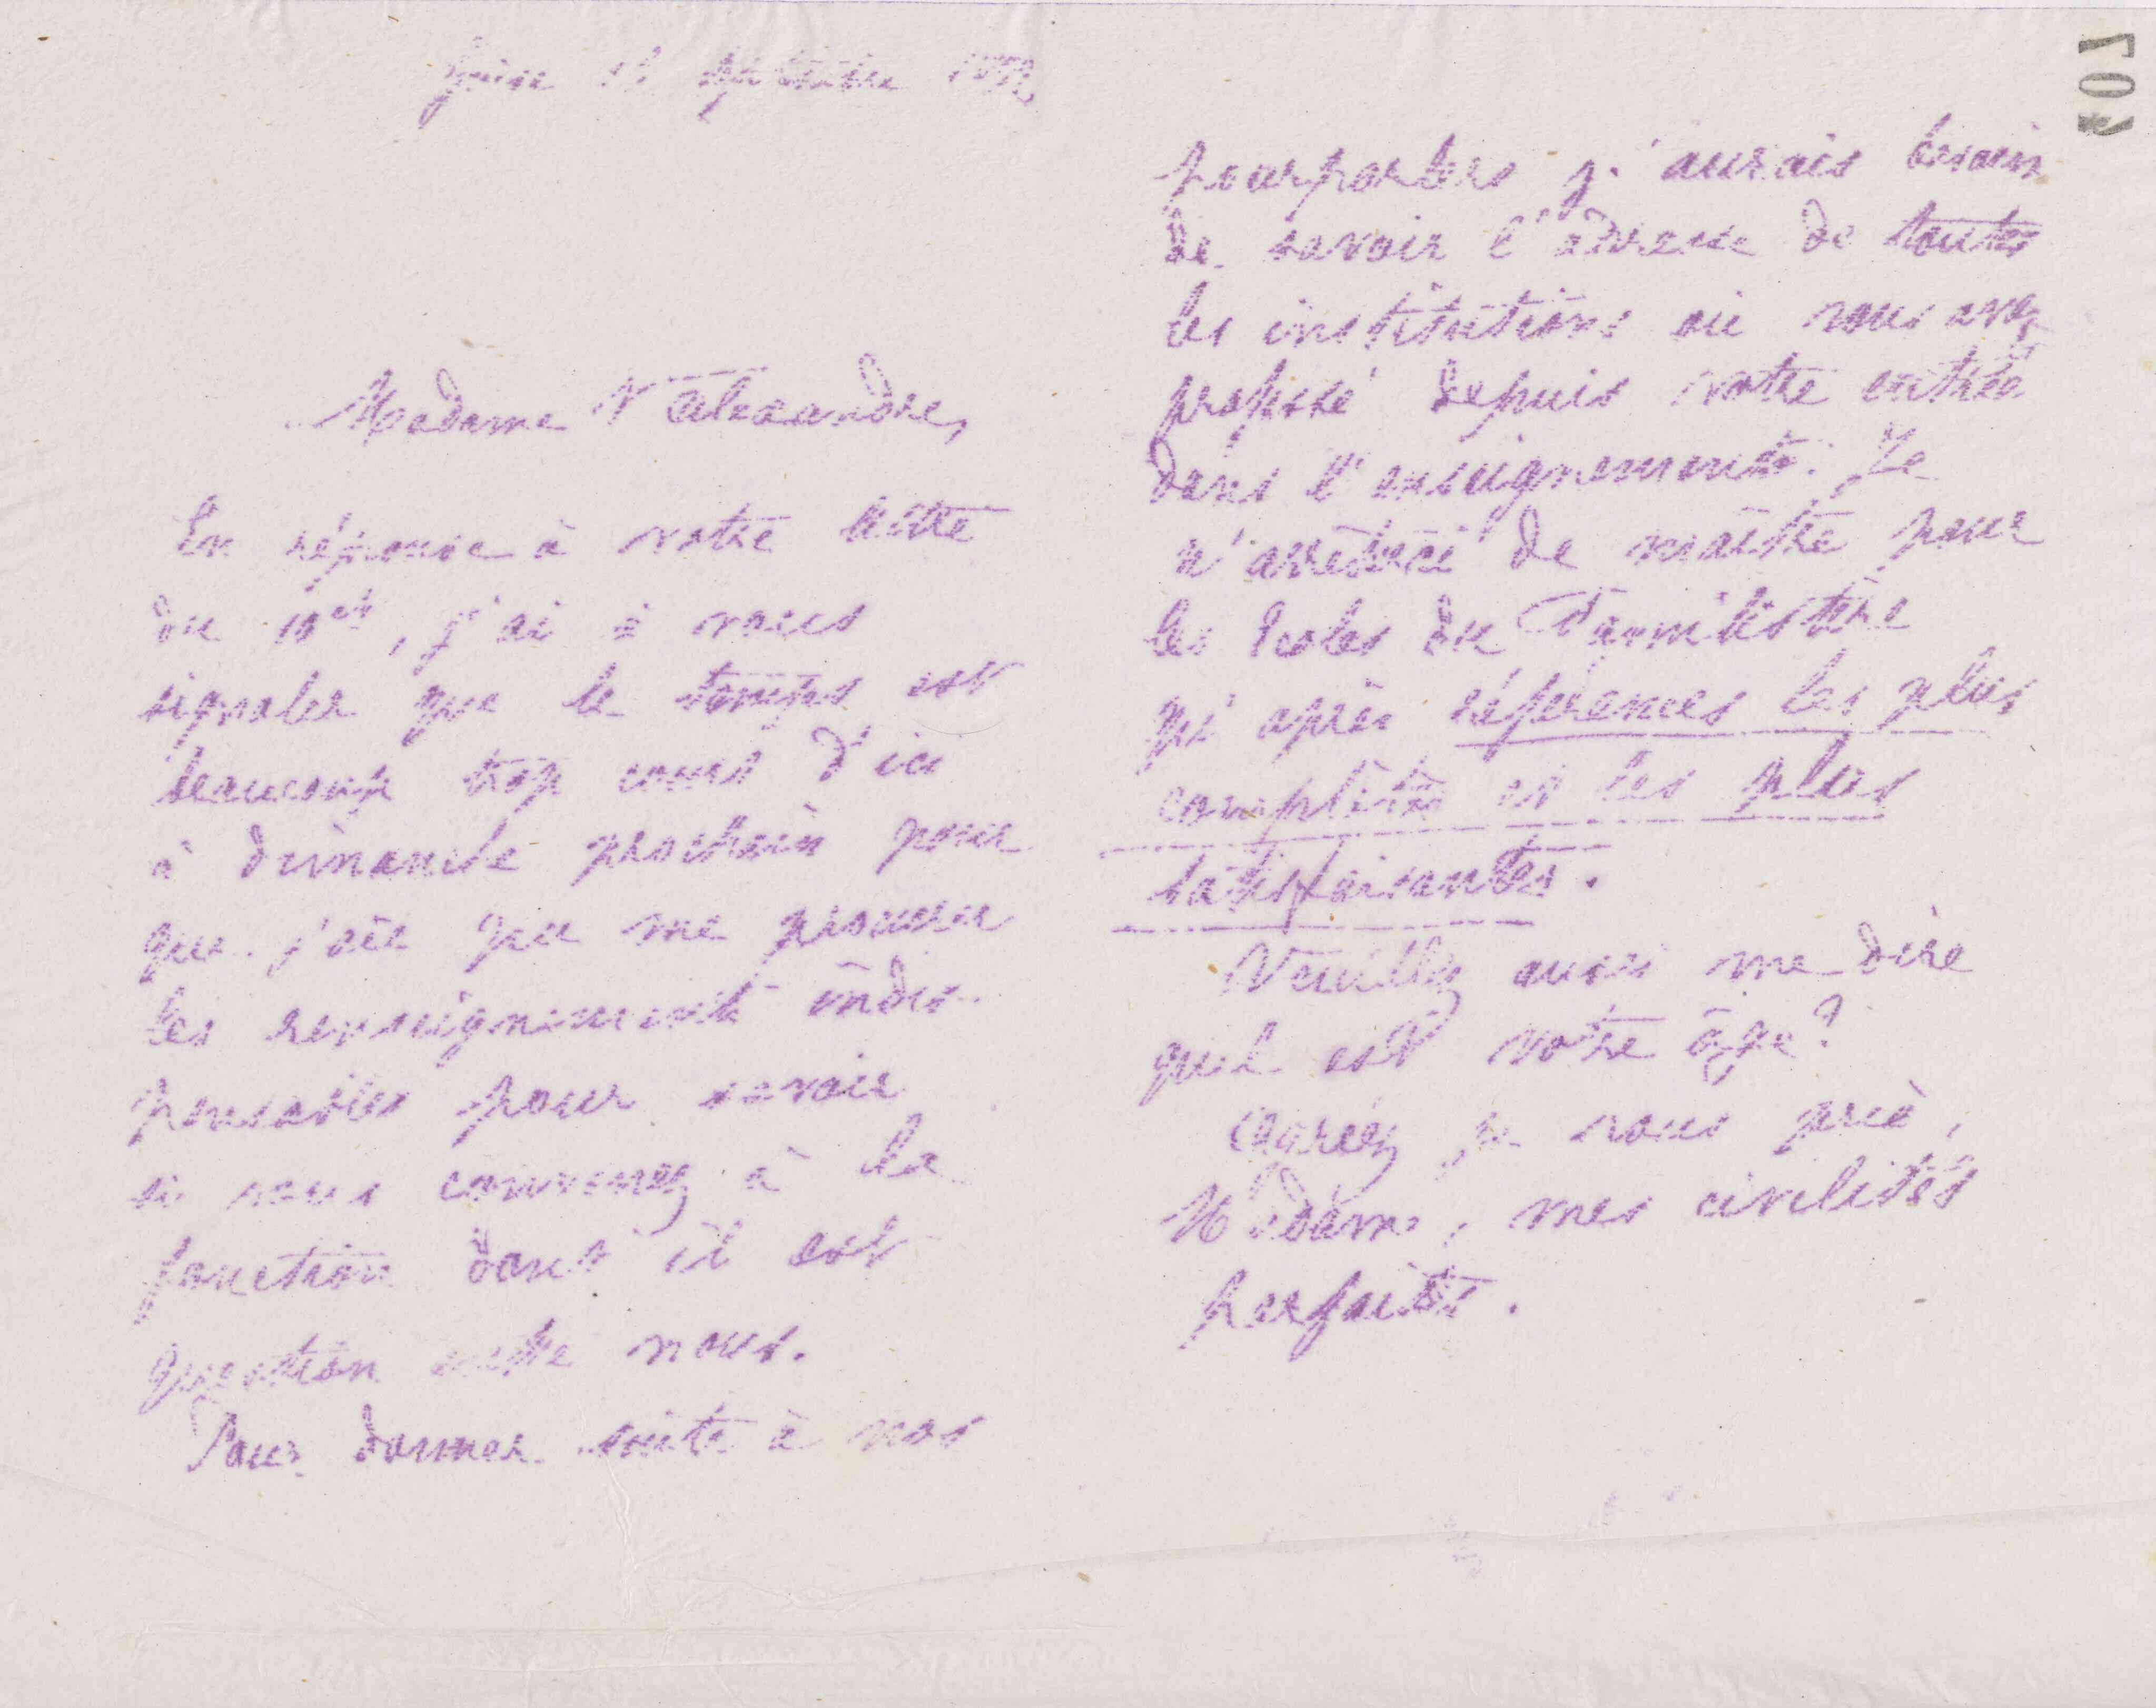 Guise 11 septembre
Madame V Alexandre,
En réponse à votre lettre
du 10 ct, j'ai à vous
signaler que le temps est
beaucoup trop court d'ici
à dimanche prochain pour
que j'aie pu me procurer
les renseignements indis-
pensables pour savoir
si vous convenez à la
fonction dont il est
question entre nous.
Pour donner suite à nos
pourparlers j'aurais besoin
de savoir l'adresse de toutes
les institutions où vous avez
professé depuis votre entrée
dans l'enseignement. Je
n'arrêterai de maître pour
les Ecoles du Familistère
qu'après références les plus
complètes et les plus
satisfaisantes.
Veuillez aussi me dire
quel est votre âge?
Agréez, je vous prie,
Madame, mes civilités
parfaites.